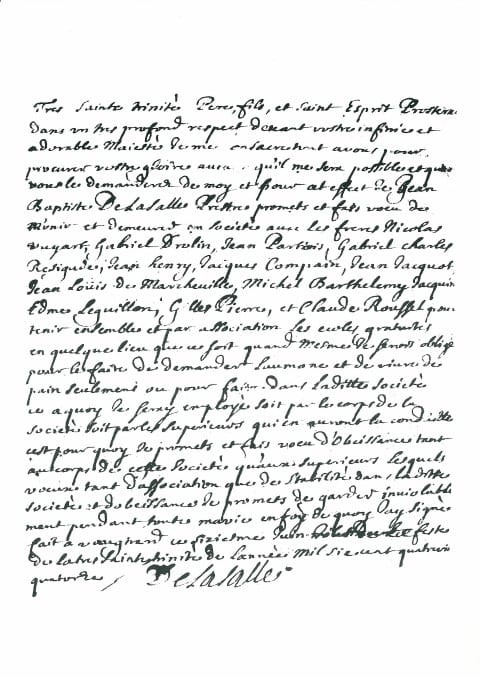 Tres Sainte trinité Pere, fils, et Saint Esprit Prosterné
dans un tres profond respect devant vostre infinie et
adorable Majesté Je me consacre tout a vous pour
procurer vostre gloire autant qu'il me sera possible et que
vous le demanderez de moy et pour cet effect Je Jean
Baptiste De la Salle Prestre promets et fais voeu de
m'unir et demeurer en Societé avec les freres Nicolas
vuyart, Gabriel Drolin, Jean Partois, Gabriel charles
Rasigade, Jean henry, Jacques Compain, Jean Jacquot,
Jean Louis de Marcheville, Michel Barthelemy Jacquin
Edme Leguillon, Gilles Pierre, et Claude Roussel pour
tenir ensemble et par association Les ecoles gratuites
en quelque lieu que ce soit quand mesme Je serois obligé
pour le faire de demander L'aumone et de vivre de
pain seulement ou pour faire dans laditte societé
ce a quoy Je seray employé soit par le corps de la
societé soit par les superieurs qui en auront la conduitte
cest pour quoy Je promets et fais voeu d'obeissance tant
au corps de cette Societé quaux superieurs Lesquels
voeux tant d'association que de Stabilité dans laditte
societé et d'obeissance Je promets de garder inviolable
ment pendant toute ma vie en foy de quoy Jay signé
fait a vaugirard ce sixieme Juin feste
de la tres Sainte trinité de Lannée mil six cent quatrevin
quatorze
De la Salle